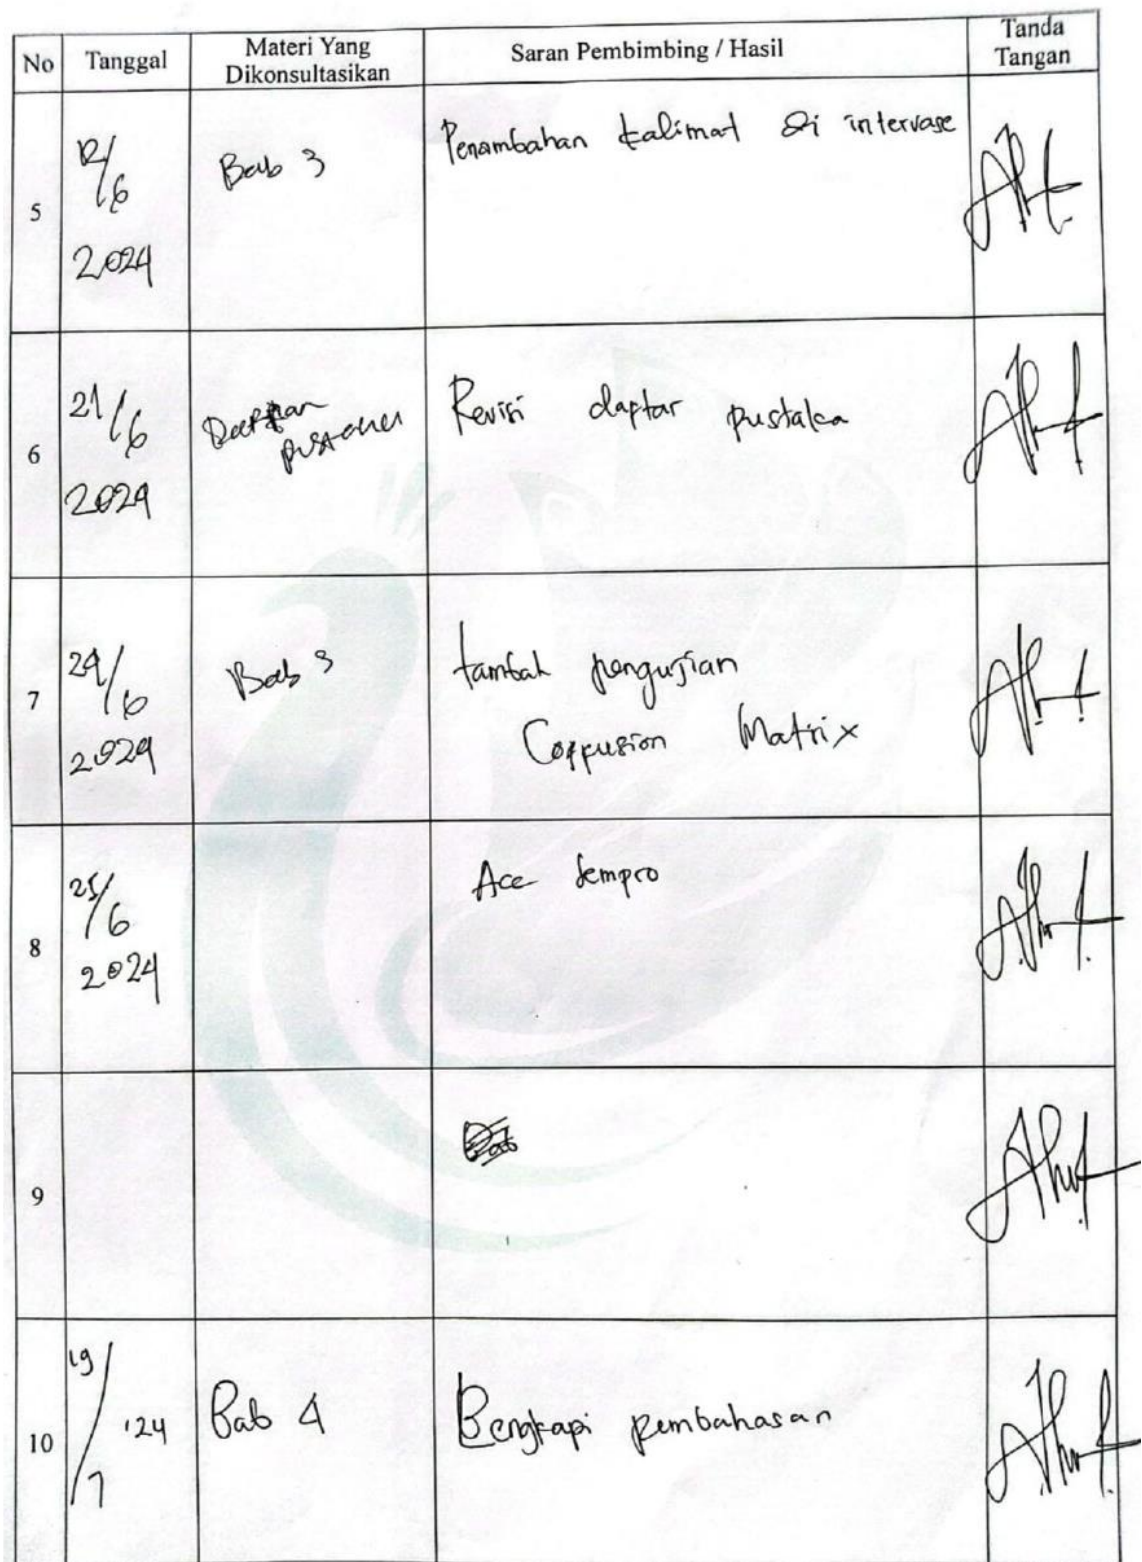 No Tanggal Materi Yang Dikonsultasikan Saran Pembimbing / Hasil Tanda Tangan
5 12/6 2024 Bab 3 Penambahan kalimat di intervase
6 21/6 2024 Revisi daftar pustaka
7 24/6 2024 Bab 3 tambah pengujian
Confusion Matrix
8 25/6 2024 Acc Sempro
9
10 19/7 '24 Bab 4 Lengkapi pembahasan